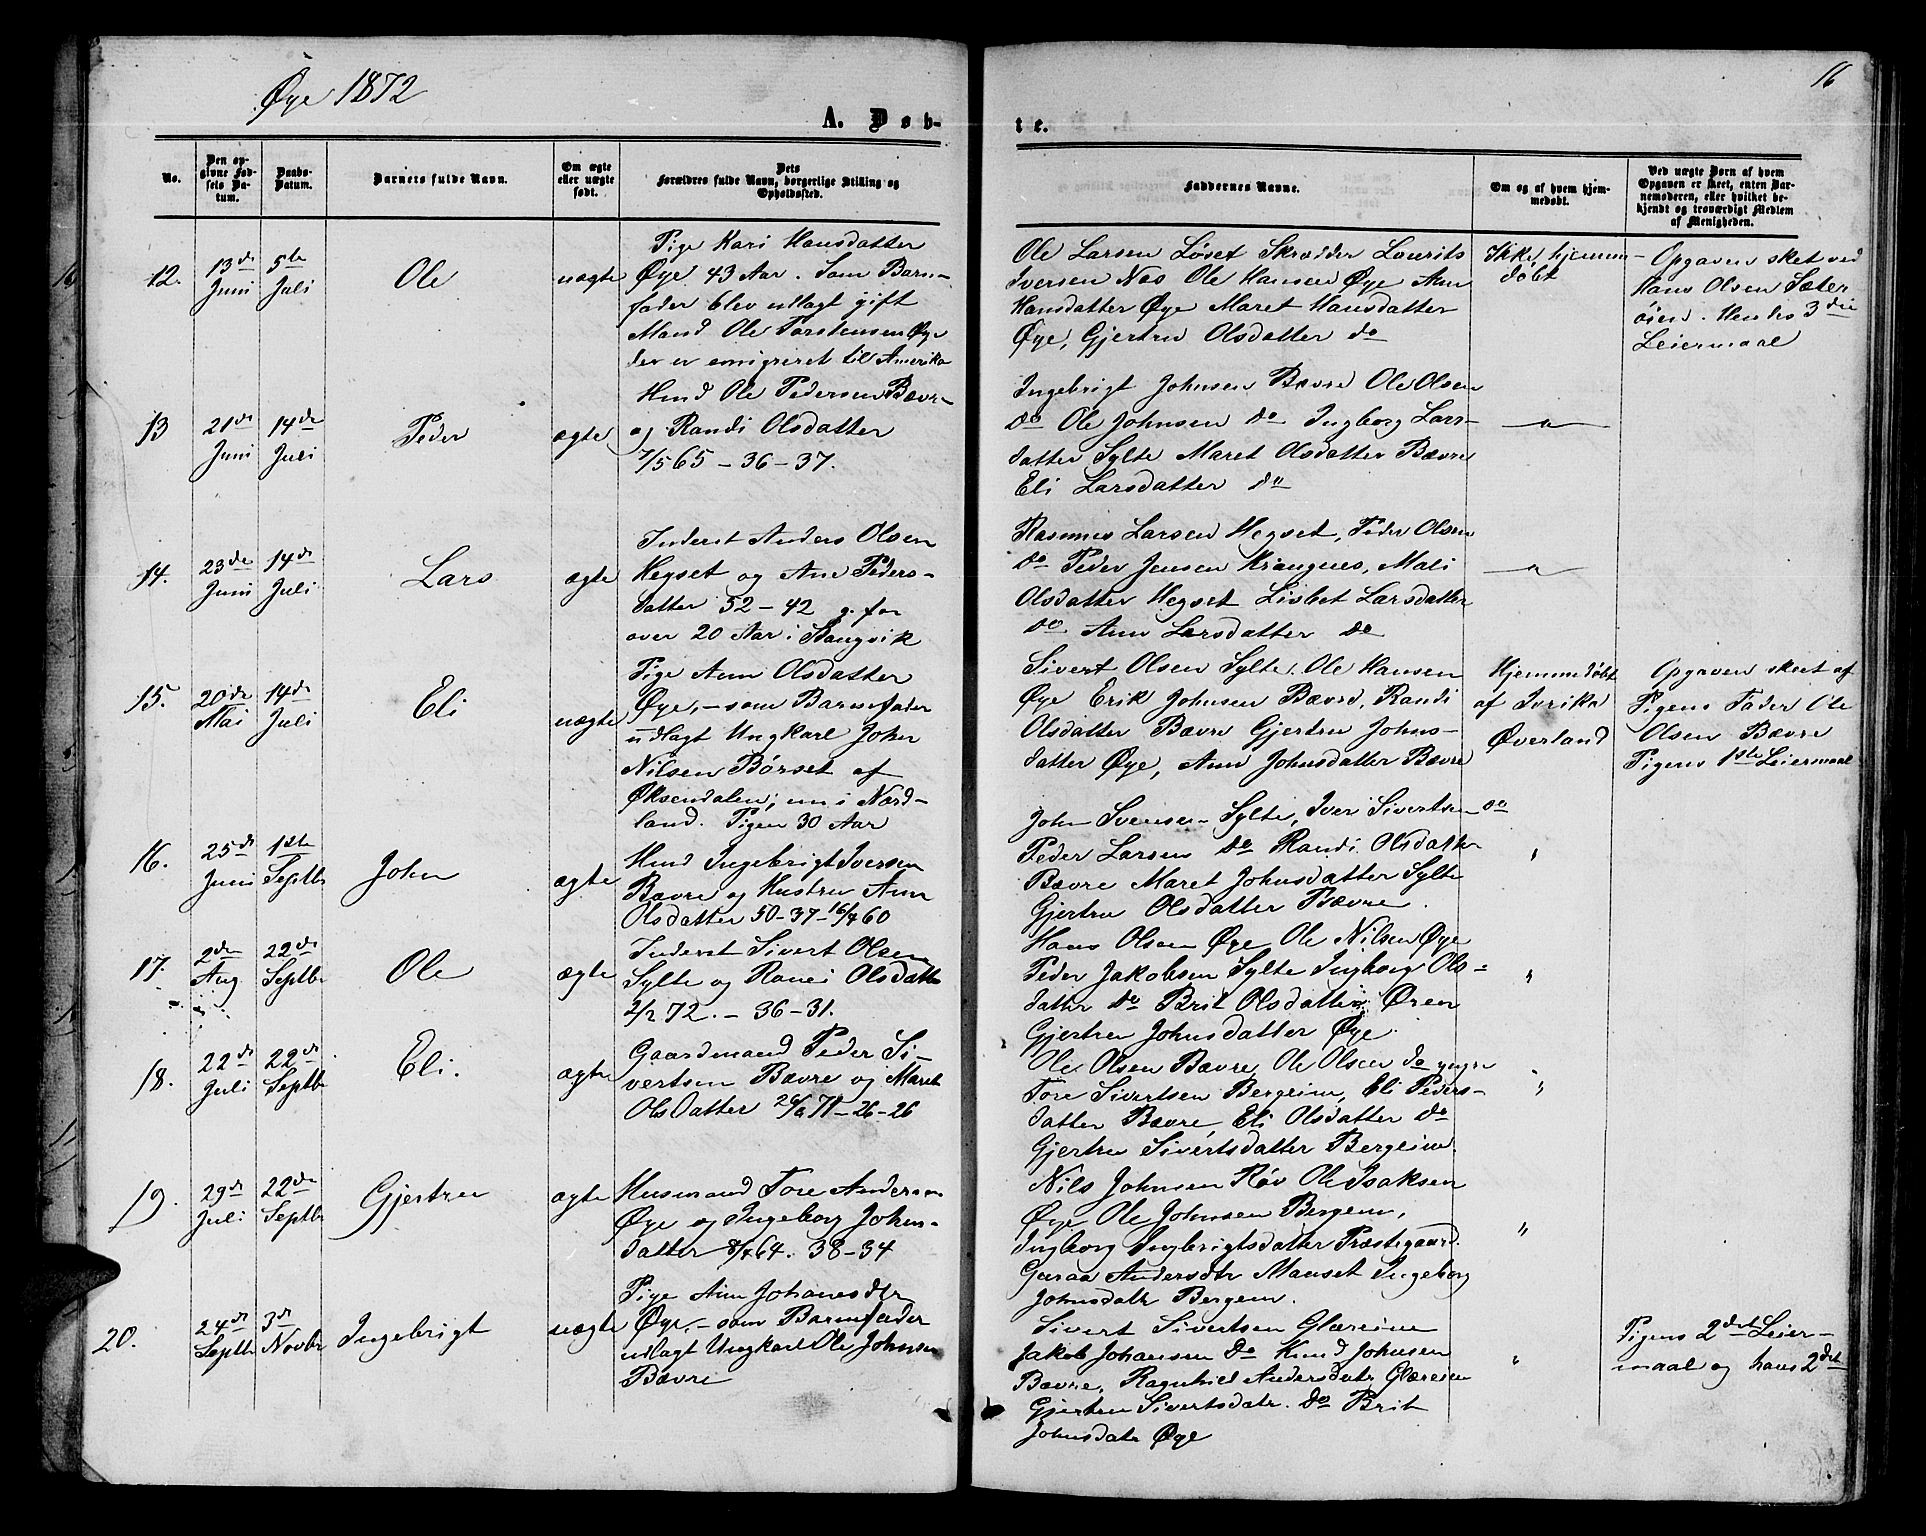 Øye 1872
16
A. Døb-
te.
No.
Den op-
givne Fød-
sels Da-
tum.
Daabs-
Datum.
Barnets fulde Navn.
Om ægte
eller uægte
født.
Dets
Forældres fulde Navn, borgerlige Stilling og
Opholdssted.
Faddernes Navne.
Om og af hvem hjem-
medøbt.
Ved uægte Børn af hvem
Opgaven er skeet, enten Bar-
nemoderen, eller hvilket be-
kjendt og troværdigt Medlem
af Menigheden.
12.
13de
Juni
5te
Juli
Ole
uægte
Pige Kari Hansdatter
Øye 43 Aar. Som Barn-
fader blev udlagt gift
Mand Ole Torstensen Øye
der er emigreret til Amerika
Ole Larsen Løset Skrædder Lourits
Iversen Næs Ole Hansen Øye Ann
Hansdatter Øye Maret Hansdatter
Øye, Gjertru Olsdatter do
Ikke hjemme-
døbt
Opgaven sket ved
Hans Olsen Sæter
øien. Hendes 3die
Leiermaal
13
21de
Juni
14de
Juli
Peder
ægte
Hmd Ole Pedersen Bævre
og Randi Olsdatter
7/5 65 - 36 - 37.
Ingebrigt Johnsen Bævre Ole Olsen
do Ole Johnsen do Ingborg Lars-
datter Sylte Maret Olsdatter Bævre
Eli Larsdatter do
— " —
14.
23de
Juni
14de
Juli
Lars
ægte
Inderst Anders Olsen
Hegset og Ann Peders-
datter 52 - 42 g. for
over 20 Aar i Stangvik
Rasmus Larsen Hegset, Peder Olsen
do Peder Jensen Krangnes, Mali
Olsdatter Hegset Lisbet Larsdatter
do Ann Larsdatter do
— " —
15.
20de
Mai
14de
Juli
Eli
uægte
Pige Ann Olsdatter
Øye, - som Barnefader
udlagt Ungkarl John
Nilsen Børset af
Øksendalen; nu i Nord-
land. Pigen 30 Aar
Sivert Olsen Sylte, Ole Hansen
Øye Erik Johnsen Bævre, Randi
Olsdatter Bævre Gjertru Johns-
datter Øye, Ann Johnsdatter Bævre
Hjemmedøbt
af Ivrika
Øverland
Opgaven skeet af
Pigens Fader Ole
Olsen Bævre
Pigens 1ste Leiermaal
16.
25de
Juni
1ste
Septbr
John
ægte
Hmd Ingebrigt Iversen
Bævre og Hustru Ann
Olsdatter 50-37-16/4 60
John Svensen Sylte, Iver Sivertsen do
Peder Larsen do Randi Olsdatter
Bævre Maret Johnsdatter Sylte
Gjertru Olsdatter Bævre.
"
17.
2den
Aug
22de
Septbr
Ole
ægte
Inderst Sivert Olsen
Sylte og Randi Olsdatter
2/2 72. - 36 - 31.
Hans Olsen Øye Ole Nilsen Øye
Peder Jakobsen Sylte Ingborg Ols-
datter do Brit Olsdatter Øren
Gjertru Johnsdatter Øye.
"
18.
22de
Juli
22de
Septbr
Eli.
ægte
Gaardmand Peder Si-
vertsen Bævre og Maret
Olsdatter 26/6 71 - 26 - 26
Ole Olsen Bævre, Ole Olsen do yngre
Tore Sivertsen Bergeim, Eli Peders-
datter Bævre, Eli Olsdatter do
Gjertru Sivertsdatter Bergeim.
"
19.
29de
Juli
22de
Septbr
Gjertru
ægte
Husmand Tore Andersen
Øye og Ingeborg Johns-
datter 8/4 64. 38-34
Nils Johnsen Røv Ole Isaksen
Øye Ole Johnsen Bergem,
Ingborg Ingbrigtsdatter Præstegaard.
Guraa Andersdtr Mauset Ingeborg
Johnsdatr Bergem.
"
20.
24de
Septbr
3de
Novbr
Ingebrigt
uægte
Pige Ann Johanesdtr
Øye, - som Barnefader
udlagt Ungkarl Ole Johnsen
Bævre
Sivert Sivertsen Glæreim
Jakob Johansen do Knud Johnsen
Bævre, Ragnhild Andersdatr Glæreim
Gjertru Sivertsdatr. do Brit
Johnsdatr Øye
"
Pigens 2det Leier-
maal og hans 2det